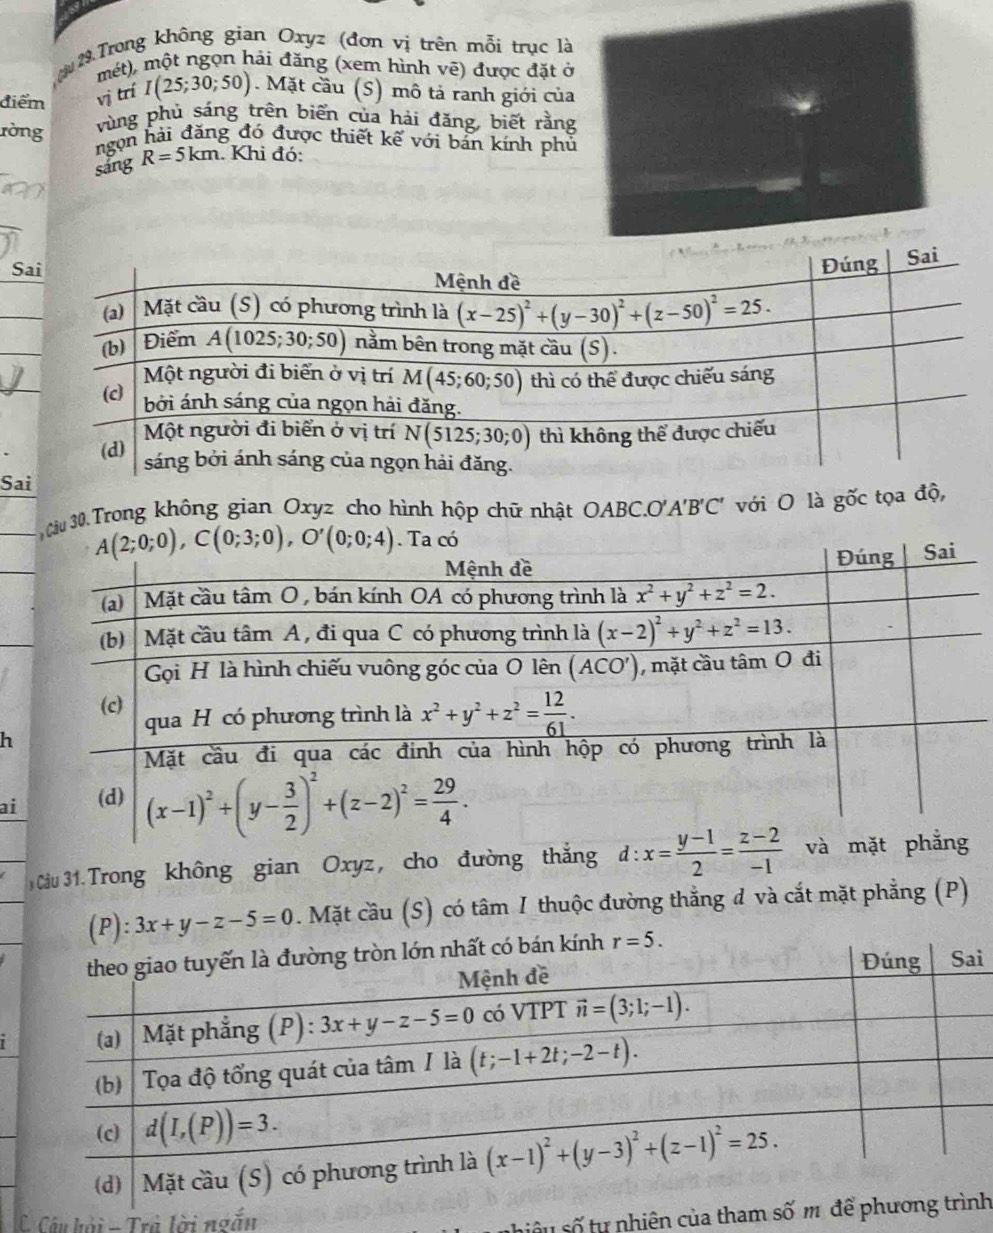 Câu 29. Trong không gian Oxyz (đơn vị trên mỗi trục là
mét), một ngọn hải đăng (xem hình vẽ) được đặt ở
vị trí I(25;30;50). Mặt cầu (S) mô tả ranh giới của
vùng phủ sáng trên biển của hải đăng, biết rằng
ngọn hải đăng đó được thiết kế với bán kính phủ
sáng R = 5 km. Khi đó:
điểm
ròng
Sai
Mệnh đề Đúng Sai
(a) Mặt cầu (S) có phương trình là (x-25)²+(y-30)²+(z-50)²=25.
(b) Điểm A(1025;30;50) nằm bên trong mặt cầu (S).
(c) Một người đi biển ở vị trí M(45;60;50) thì có thể được chiếu sáng
bởi ánh sáng của ngọn hải đăng.
(d) Một người đi biển ở vị trí N(5125;30;0) thì không thể được chiếu
sáng bởi ánh sáng của ngọn hải đăng.
Sai
Câu 30. Trong không gian Oxyz cho hình hộp chữ nhật OABC.O'A'B'C' với O là gốc tọa độ,
A(2;0;0), C(0;3;0), O'(0;0;4). Ta có
Mệnh đề Đúng Sai
(a) Mặt cầu tâm O, bán kính OA có phương trình là x²+y²+z²=2.
(b) Mặt cầu tâm A, đi qua C có phương trình là (x-2)²+y²+z²=13.
(c) Gọi H là hình chiếu vuông góc của O lên (ACO'), mặt cầu tâm O đi
qua H có phương trình là x²+y²+z²=12/61.
h
(d) Mặt cầu đi qua các đỉnh của hình hộp có phương trình là
(x-1)²+(y-3/2)²+(z-2)²=29/4.
ai
Câu 31. Trong không gian Oxyz, cho đường thẳng d: x = (y-1)/2 = (z-2)/-1 và mặt phẳng
(P): 3x+y-z-5=0. Mặt cầu (S) có tâm I thuộc đường thẳng d và cắt mặt phẳng (P)
theo giao tuyến là đường tròn lớn nhất có bán kính r=5.
Mệnh đề Đúng Sai
i
(a) Mặt phẳng (P): 3x+y-z-5=0 có VTPT n⃗=(3;1;-1).
(b) Tọa độ tổng quát của tâm I là (t;-1+2t;-2-t).
(c) d(I,(P))=3.
(d) Mặt cầu (S) có phương trình là (x-1)²+(y-3)²+(z-1)²=25.
C. Câu hỏi – Trả lời ngắn
số tự nhiên của tham số m để phương trình